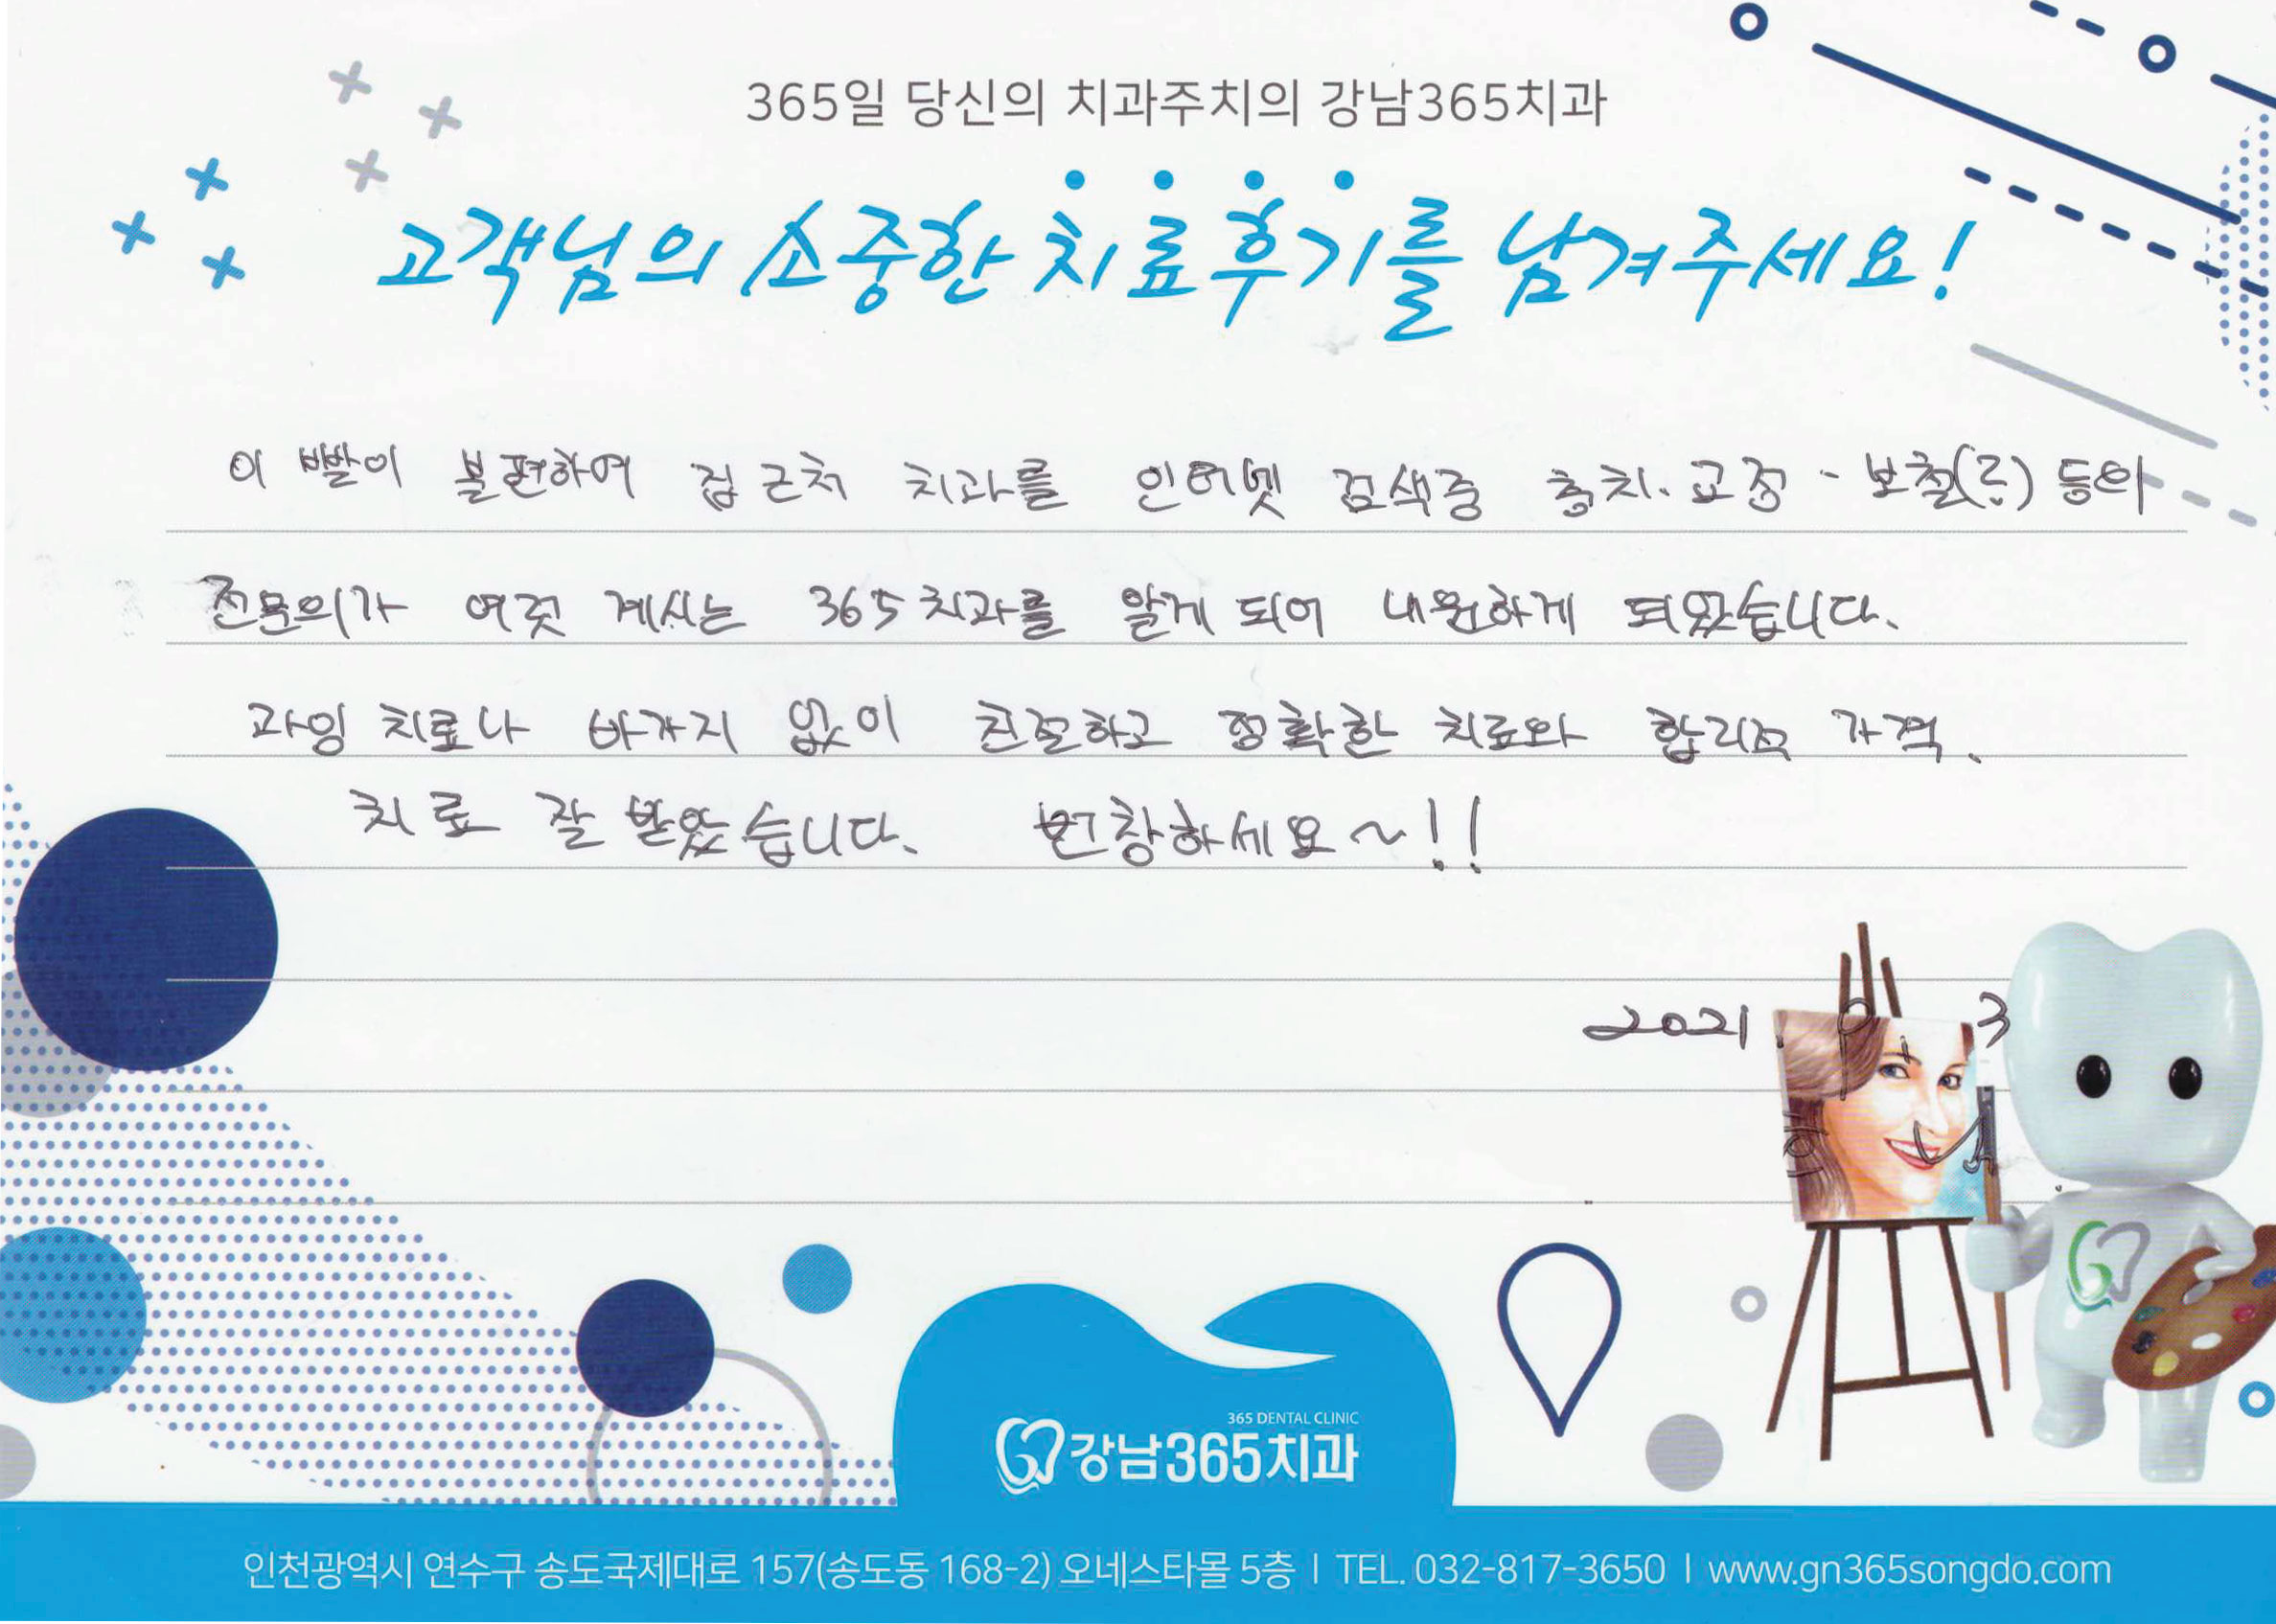 365일 당신의 치과주치의 강남365치과
고객님의 소중한 치료후기를 남겨주세요!
이빨이 불편하여 집 근처 치과를 인터넷 검색중 충치. 교정 - 보철(?) 등의
전문의가 여럿 계시는 365치과를 알게 되어 내원하게 되었습니다.
과잉 치료나 바가지 없이 친절하고 정확한 치료와 합리적 가격.
치료 잘 받았습니다. 번창하세요~!!
2021. 3
365 DENTAL CLINIC
강남365치과
인천광역시 연수구 송도국제대로 157(송도동 168-2) 오네스타몰 5층 I TEL. 032-817-3650 I www.gn365songdo.com